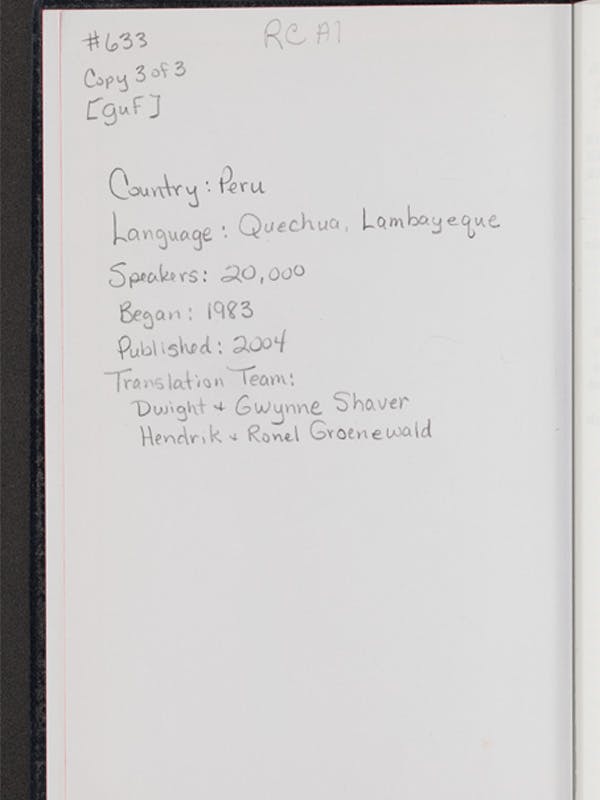 #633
RC A1
Copy 3 of 3
[guf]
Country: Peru
Language: Quechua, Lambayeque
Speakers: 20,000
Began: 1983
Published: 2004
Translation Team:
Dwight + Gwynne Shaver
Hendrik + Ronel Groenewald